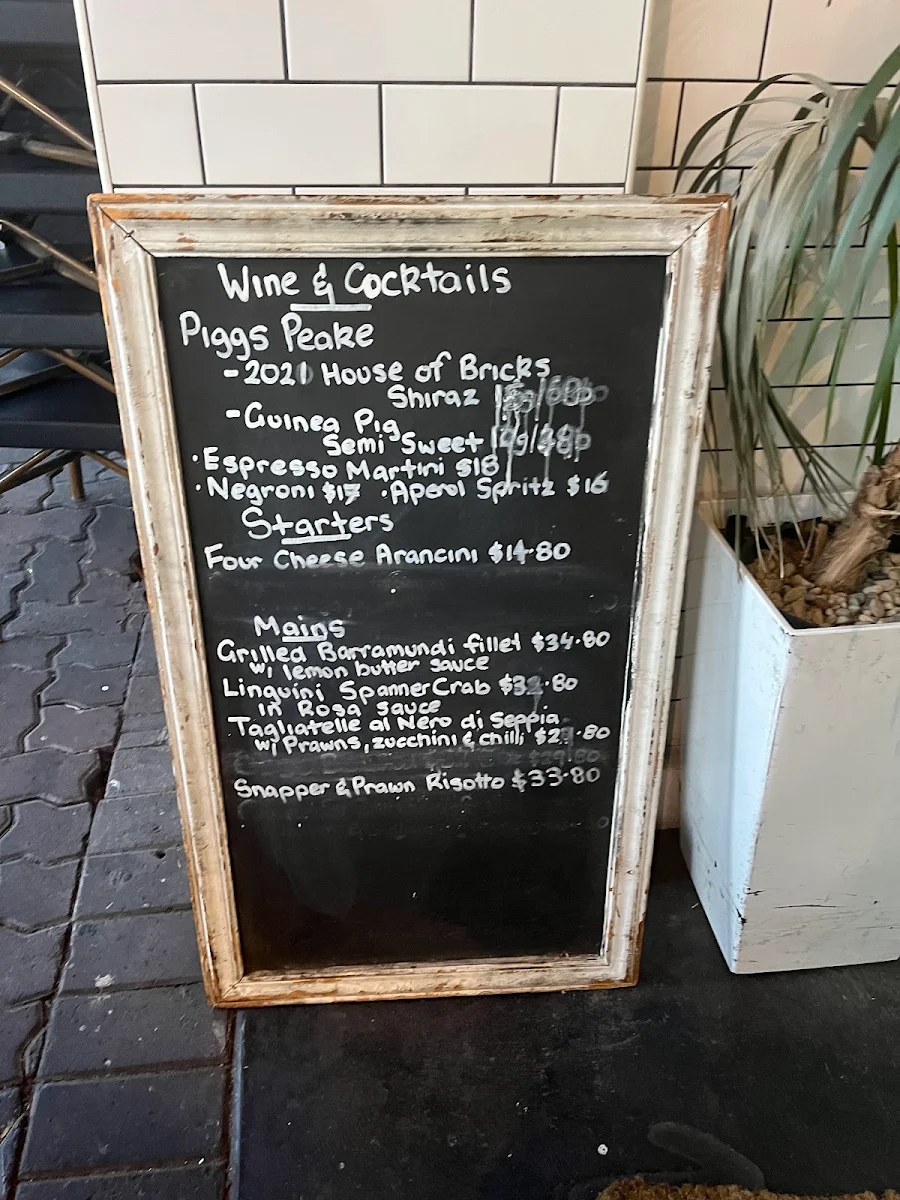 Wine & Cocktails
Piggs Peake
- 2021 House of Bricks
Shiraz
- Guinea Pig
Semi Sweet
·Espresso Martini $18
·Negroni $17 ·Aperol Spritz $16
Starters
Four Cheese Arancini $14.80
Mains
Grilled Barramundi fillet $34.80
w/ lemon butter sauce
Linguini Spanner Crab
in Rosa sauce
Tagliatelle al Nero di Seppia
w/ Prawns, zucchini & chilli
Snapper & Prawn Risotto $33.80